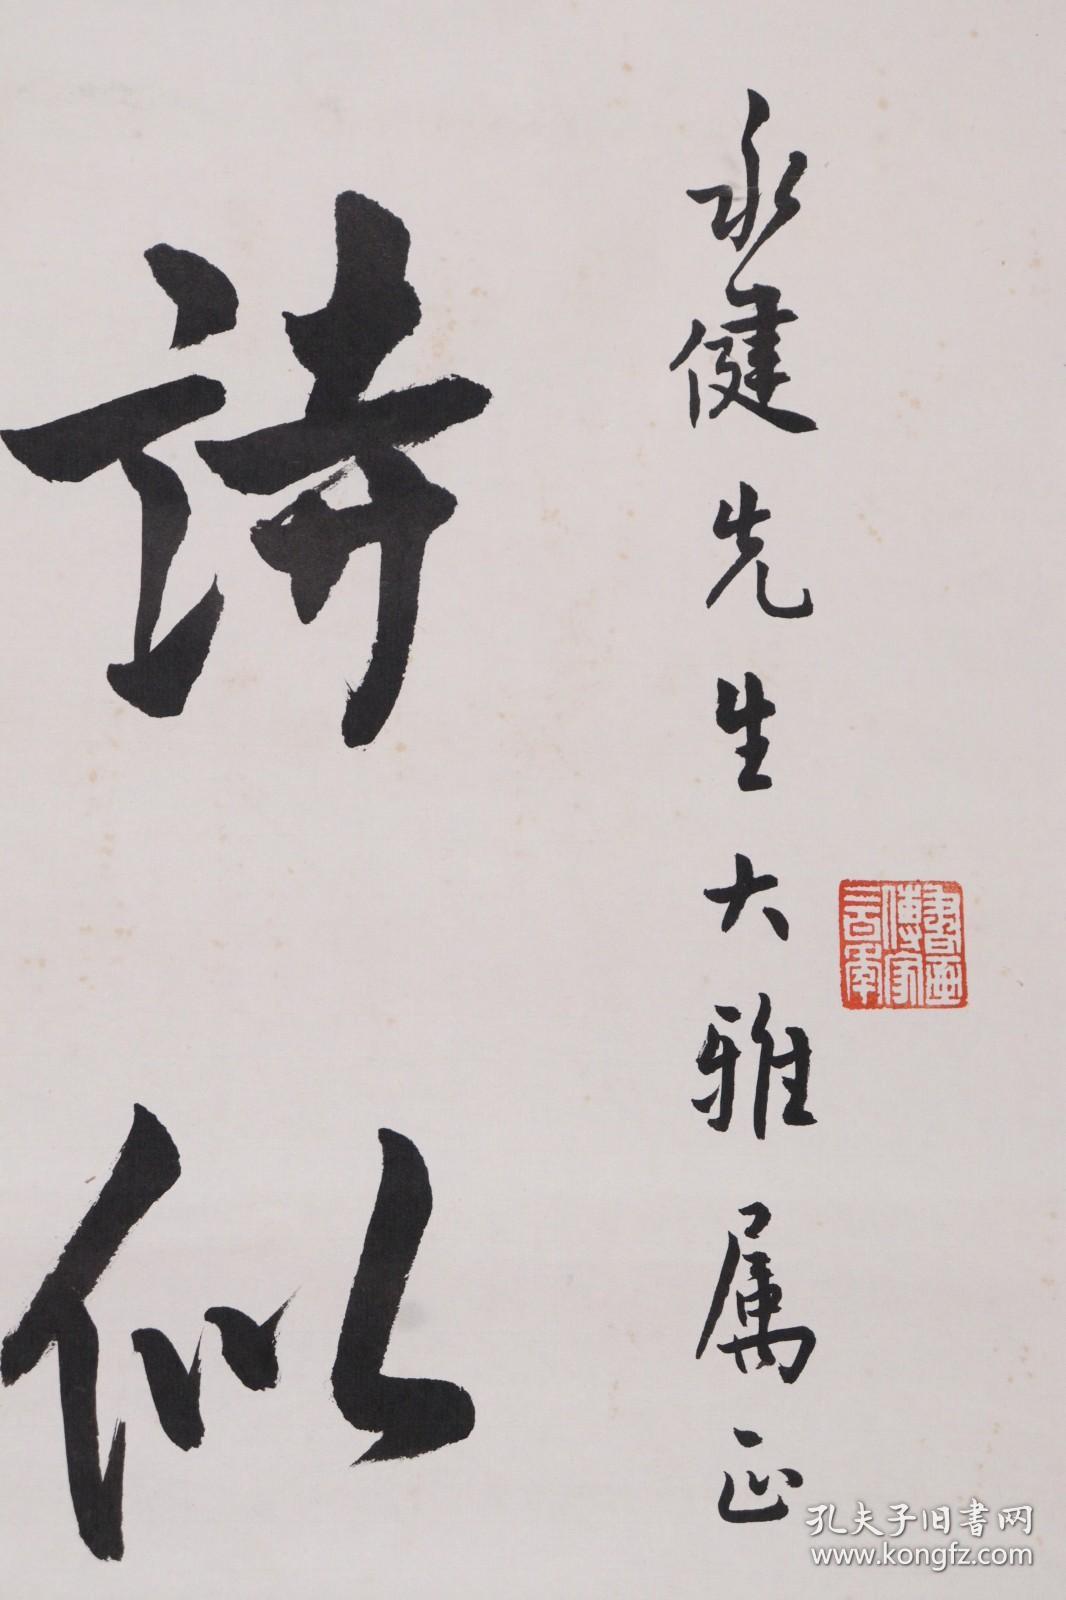 永健先生大雅属正
詩似
書畫傳家三百年
孔夫子旧書网
www.kongfz.com